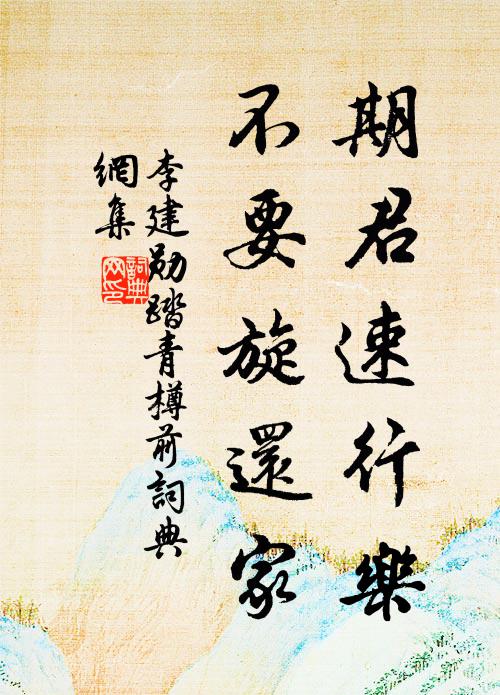 期君速行樂
不要旋還家
李建勛踏青樽前詞典
網集
詞典網印